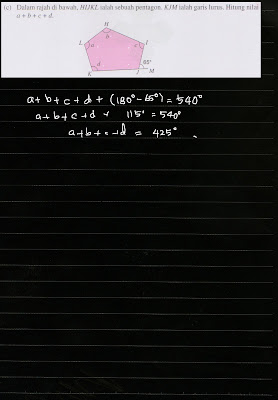 (c) Dalam rajah di bawah, HIJKL ialah sebuah pentagon. KJM ialah garis lurus. Hitung nilai
a + b + c + d.
H
b
L a c I
65°
d
K J M
a + b + c + d + (180° - 65°) = 540°
a + b + c + d + 115° = 540°
a + b + c + d = 425°